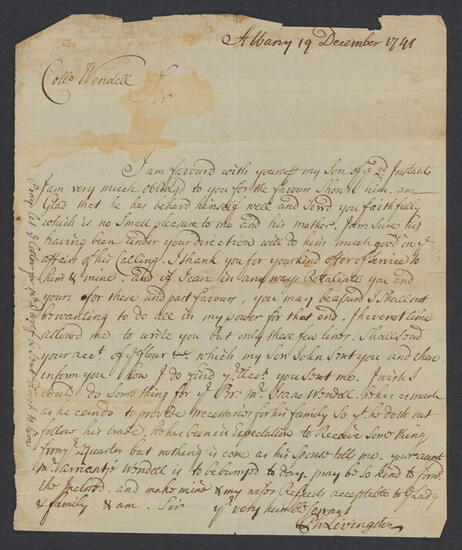 Albany 19 December 1741
Collo Wendell Sir
I am favourd with yours ⅌ my Son of ye Instant
I am very much Obliged to you for the favours Shown him, am
Glad that he has behavd himself well and Servd you faithfully
which is no Small pleasure to me and his mother. I am Sure his
having been under your direction will do him much good in ye
affairs of his Calling. I thank you for your kind offer of Service to
him & mine. and if I can in any ways Retaliate you and
yours for these and past favour, you may be assurd I Shall not
be wanting to do all in my power for that End. I have not time
allowed me to write you but only these few lines. I Shall Send
your acct. of ye flour &c which my Son John Sent you and then
inform you how I do find ye Acct. you Sent me. I wish I
Could do Something for yr. Br. Mr. Isaac Wendell. he has as much
as he can do to provide necessarys for his family So yt he doth not
follow his trade. he has been in Expectation to Receive Something
from yr Quarter but nothing is come as his Spouse tells me. your aunt
Mrs. Wendell is to be buried to day. pray be So kind to forwd.
the Inclosd. and make mine & my wifes Respect acceptable to yr Lady
& family & am Sir yr very humble Servant
Livingston
Pray let ye